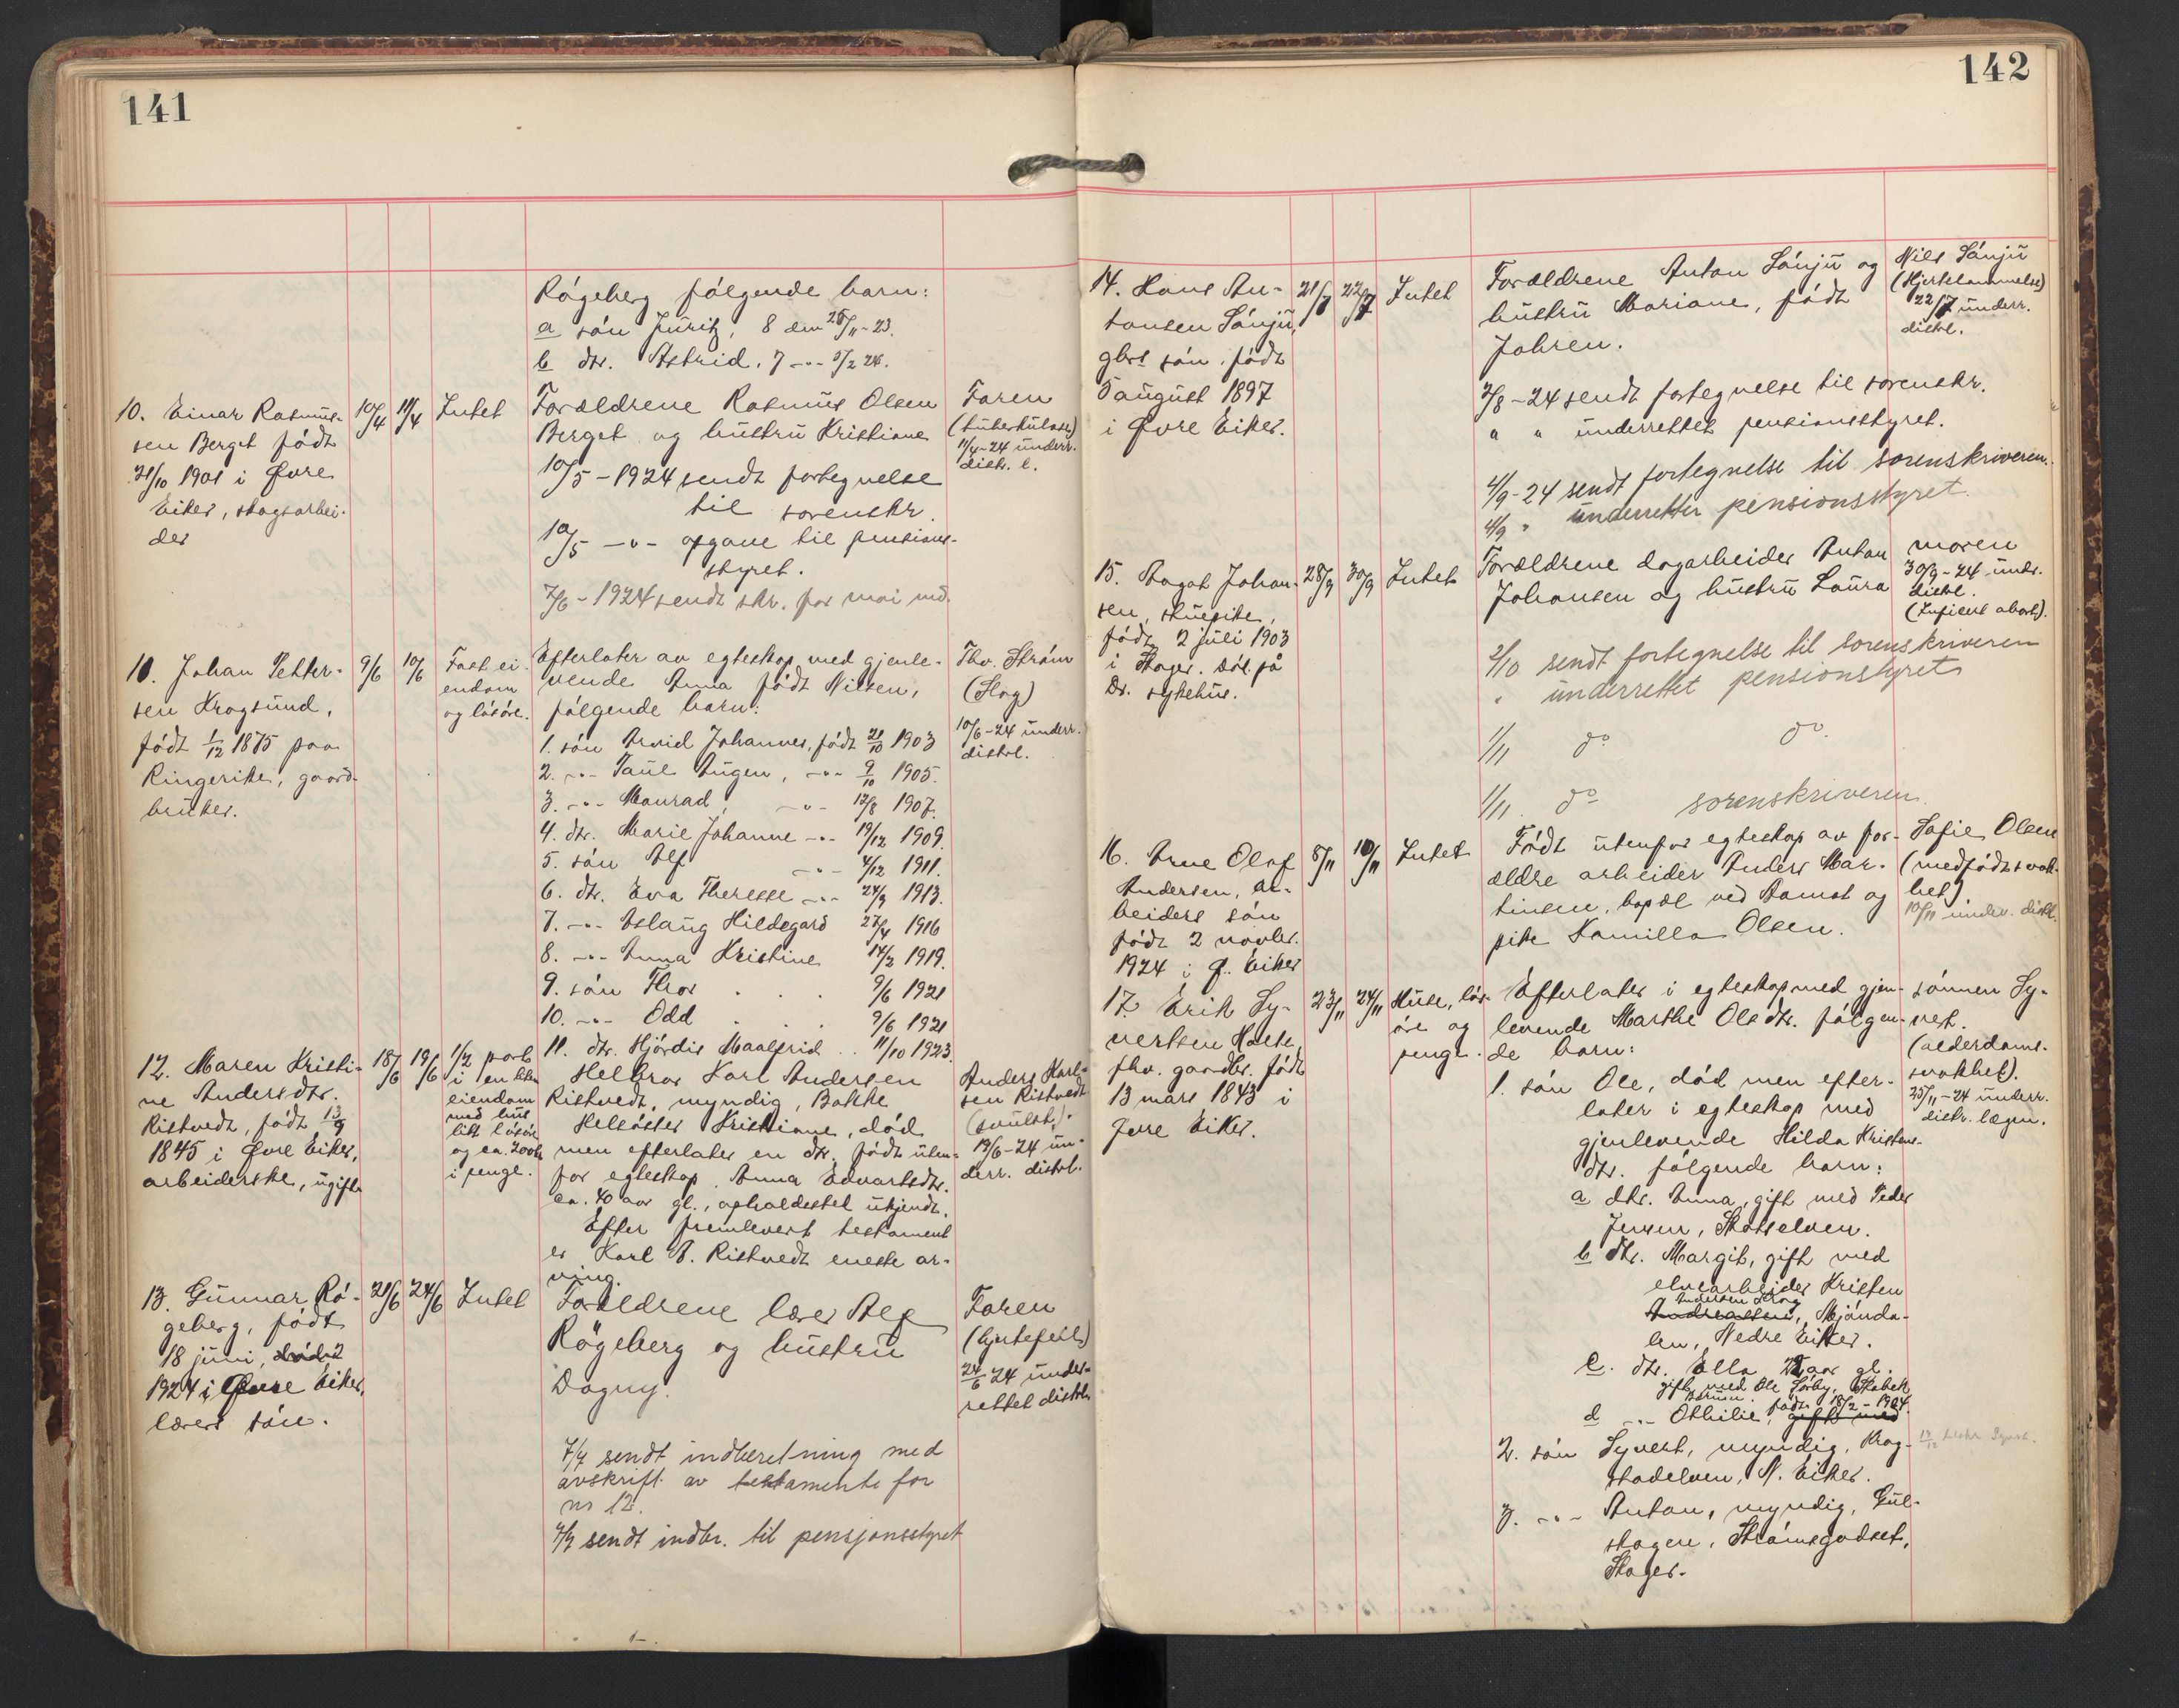 141
Rógeberg fólgende barn:
a són Juritz, 8 den 25/11-23.
b dtr. Astrid. 7 -"- 5/2 24.
10. Einar Rasmus-
sen Berget födt
21/10 1901 i Øvre
Eiker, skogsarbei-
der
10/4
11/4
Intet
Forældrene Rasmus Olsen
Berget og hustru Kristiane
10/5 - 1924 sendt fortegnelse
til sorenskr.
10/5 -"- opgave til pensions-
styret.
7/6 - 1924 sendt skr. for mai md.
Faren
(tuberkulose)
11/4-24 underr.
distr. l.
11. Johan Petter-
sen Krogsund,
födt 1/12 1875 paa
Ringerike, gaard-
bruker.
9/6
10/6
Fast ei-
endom
og lösöre.
Efterlater av egteskap med gjenle-
vende Anna födt Nilsen,
fólgende barn:
1. són Arvid Johannes, födt 21/10 1903
2. -"- Paul Augen, -"- 9/10 1905.
3. -"- Monrad, -"- 12/8 1907.
4. dtr. Marie Johanne -"- 19/12 1909.
5. són Alf -"- 4/12 1911.
6. dtr. Eva Theresse -"- 24/9 1913.
7. -"- Aslaug Hildegard 27/4 1916
8. -"- Anna Kristine 14/2 1919.
9. són Thor . . . 9/6 1921
10. -"- Odd . . . 9/6 1921
11. dtr. Hjördis Maalfrid . . 11/10 1923.
Thv. Ström
(Slag)
10/6-24 underr.
distrl.
12. Maren Kristi-
ne Andersdtr.
Ristvedt, födt 13/9
1845 i Øvre Eiker,
arbeiderske, ugift
18/6
19/6
1/2 part
i en liten
eiendom
med hus
litt lösöre
og ca. 200 kr
i penge.
Helbror Karl Andersen
Ristvedt, myndig, Bakke
Helsöster Kristiane, död
men efterlater en dtr. födt uten-
for egteskap, Anna Edvartsdtr.
ca. 40 aar gl., opholdsstet ukjendt.
Efter fremlevert testament
er Karl A. Ristvedt eneste ar-
ving.
Anders Karl-
sen Ristvedt
(svulst).
19/6-24 un-
derr. distrl.
13. Gunnar Rö-
geberg, födt
18 juni,
1924 i Øvre Eiker,
lærers són.
21/6
24/6
Intet
Forældrene lærer Alf
Rögeberg og hustru
Dagny.
7/7 sendt indberetning med
avskrift av testamente for
nr 12.
7/7 sendt indbr. til pensjonsstyret
Faren
(hjertefeil)
24/6 24 under-
rettet distrl.
142
14. Hans An-
tonsen Sönju,
gbrs són. födt
5 august 1897
i Øvre Eiker.
21/7
22/7
Intet
Forældrene Anton Sönju og
hustru Mariane, födt
Johren.
2/8-24 sendt fortegnelse til sorenskr.
" " underrettet pensionsstyret.
4/9-24 sendt fortegnelse til sorenskriveren.
4/9 " underretter pensionsstyret.
Niels Sönju
(Hjertelammelse)
22/7 underr.
distrl.
15. Aagot Johan-
sen, stuepike,
födt 2 juli 1903
i Skoger. död på
Dr. sykehus.
28/9
30/9
Intet
Forældrene dagarbeider Anton
Johansen og hustru Laura
2/10 sendt fortegnelse til sorenskriveren
" underrettet pensionstyret
1/11 do do.
1/11. do sorenskriveren
moren
30/9-24 undr.
distrl.
(Inficert abort).
16. Arne Olaf
Andersen, ar-
beiders són
födt 2 novbr.
1924 i Ø. Eiker
8/11
10/11
Intet
Födt utenfor egteskap av for-
ældre arbeider Anders Mar-
tinsen, bopæl ved Aamot og
pike Kamilla Olsen.
Sofie Olsen
(medfödt svak-
het)
10/11 underr. distrl.
17. Erik Sy-
vertsen Horte,
fhv. gaardbr. födt
13 mars 1843 i
Øvre Eiker.
23/11
24/11
Huse, lös-
öre og
penge.
Efterlater i egteskap med gjen-
levende Marthe Olsdtr. fölgen-
de barn:
1. són Ole, död men efter-
later i egteskap med
gjenlevende Hilda Kristens-
dtr. fölgende barn:
a dtr. Anna, gift med Peder
Jensen, Skotselven.
b dtr. Margit, gift med
elvearbeider Kristen
Andersen Krog
Andreassen, Mjönda-
len, Nedre Eiker.
c. dtr. Ella aar gl.
gift med Ole Sörby, Stabek
Bærum.
d -"- Othilie, födt 18/2-1904. gift med
2. són Syvert, myndig, Krog-
stadelven, N. Eiker.
3. -"- Anton, myndig, Gul-
skogen, Strömsgodset,
Skoger.
sönnen Sy-
vert.
(alderdoms-
svakhet).
25/11-24 underr.
distr. lægen.